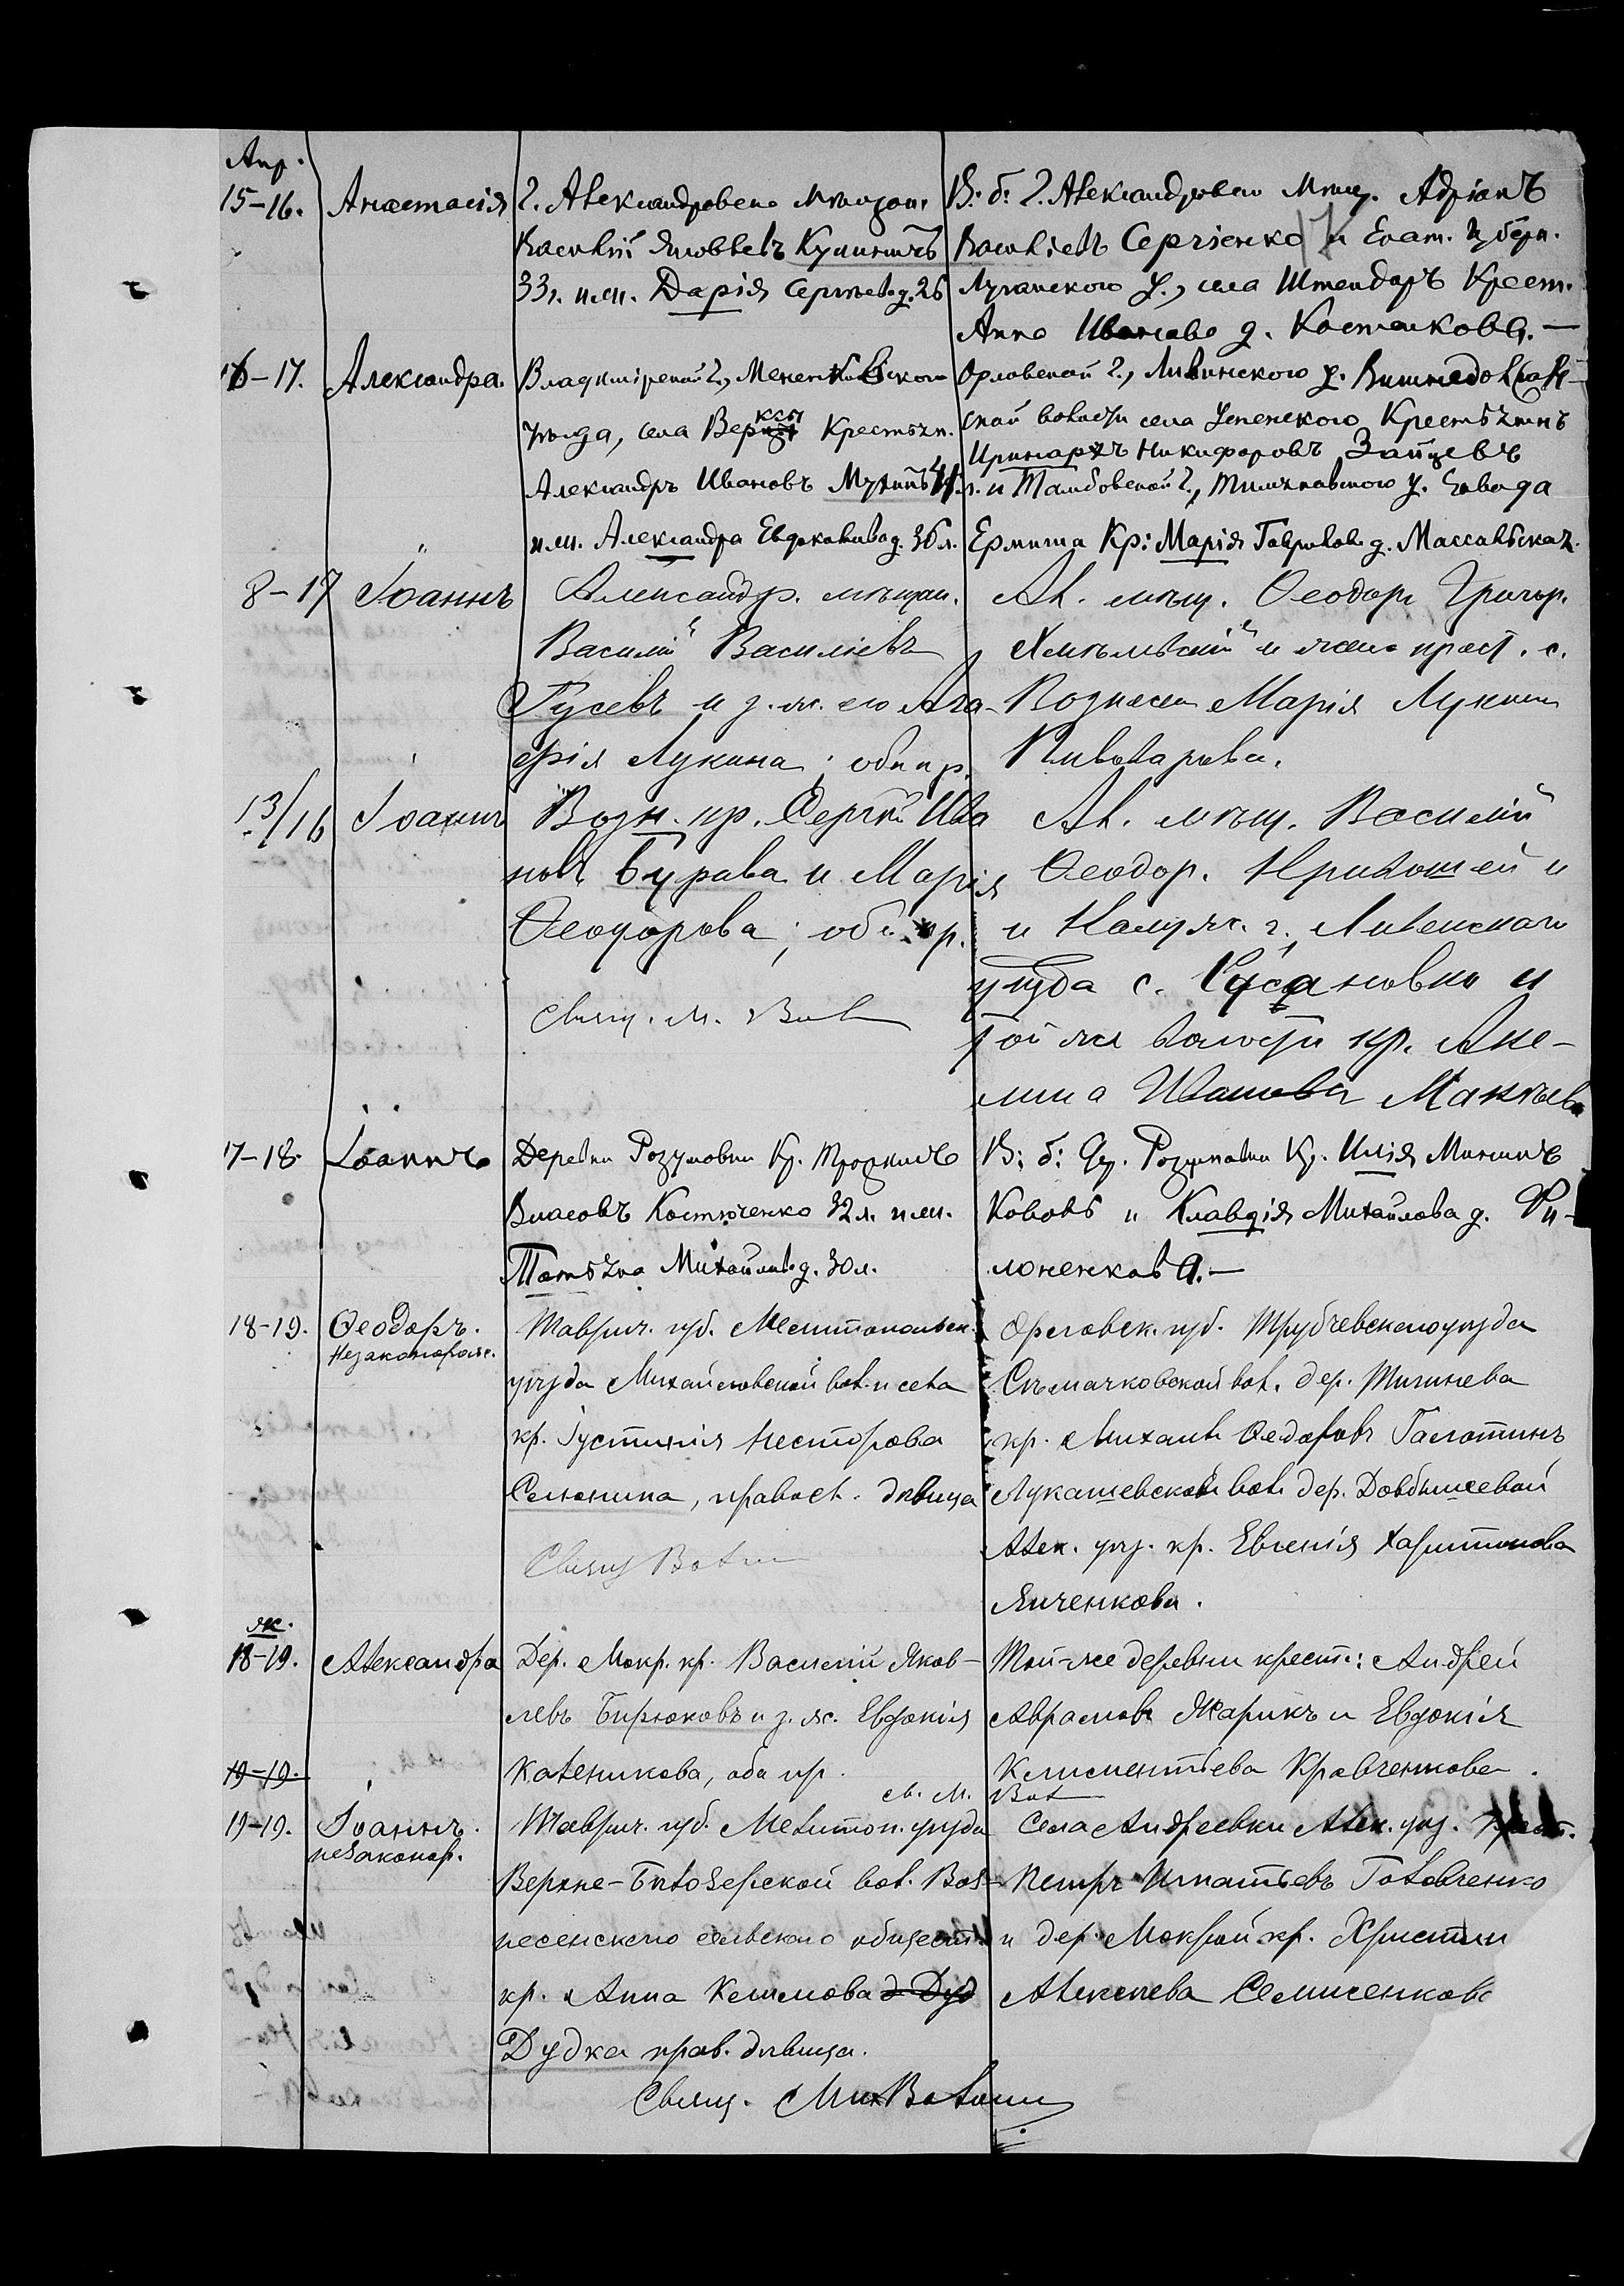 Апр.
15-16. Анастасія
г. Александровска мѣщан.
Василій Яковлевъ Кушниръ
33 г. и ж. Дарія Сергѣева д. 26
В: б: г. Александровска Мѣщ. Адріанъ
Васильевъ Сергіенко и Екат. губерн.
у., села Штендарь Крест.
Анна Иванова д. Костенкова. —
16-17. Александра.
Владимірской г., Меленковскаго
уѣзда, села Верксы Крестьян.
Александръ Ивановъ Мухинъ 41 л.
и ж. Александра Евдокимова д. 36 л.
Орловской г., Ливинскаго у.
ской волости села Успенскаго Крестьянинъ
Иринархъ Никифоровъ Зайцевъ
и Тамбовской г., у. Завода
Ермиша Кр: Марія Гаврилова д. Массальская.
8-17 Іоаннъ
Александр. мѣщан.
Василій Васильевъ
Гусевъ и з. ж. его Ага-
фія Лукина; оба пр.
Ал. мѣщ. Ѳеодоръ Григор.
и жена прост. с.
Вознесен Марія Лукина
Пивоварова.
13/16 Іоаннъ
Возн. кр. Сергій Ива
новъ Бурава и Марія
Ѳеодорова; оба пр.
Свящ. М.
Ал. мѣщ. Василій
Ѳеодор. Кривошей и
и Калуж. г.,
уѣзда с. и
той же волости кр. Аки-
лина Иванова
17-18. Іоаннъ
Деревни Розумовки Кр. Трофимъ
Власовъ Костюченко 32 л. и ж.
Татьяна Михайлова д. 30 л.
В: б: Др. Розумовки Кр. Илія Мининъ
и Клавдія Михайлова д. Фи-
лоненкова. —
18-19. Ѳеодоръ.
Незаконорож.
Таврич. губ. Мелитопольск.
уѣзда Михайловской вол. и села
кр. Іустинія Несторова
Селюнина, правосл. дѣвица
Свящ
Орловск. губ. Трубчевскаго уѣзда
Сѣмячковской вол. дер. Тишнева
кр. Михаилъ Ѳедоровъ Галотинъ
Лукашевской вол. дер. Довбишевой
Алек. уѣз. кр. Евгенія Харитонова
Яиченкова.
ж.
18-19. Александра
Дер. Мокр. кр. Василій Яков-
левъ Бирюковъ и з. ж. Евдокія
Каленикова, оба пр.
св. М.
Той-же деревни крест.: Андрей
Аврамовъ Жарикъ и Евдокія
Климентіева Кравченкова.
19-19.
19-19. Іоаннъ.
незаконор.
Таврич. губ. Мелитоп. уѣзда
Верхне-Бѣлозерской вол. Воз-
несенскаго сельскаго общест.
кр. Анна Климова д Дуд
Дудка прав. дѣвица.
Свящ. Мих
Села Андреевки Алек. уѣз.
Петръ Игнатьевъ Головченко
и дер. Мокрой кр. Христин
Алексѣева Семисенкова